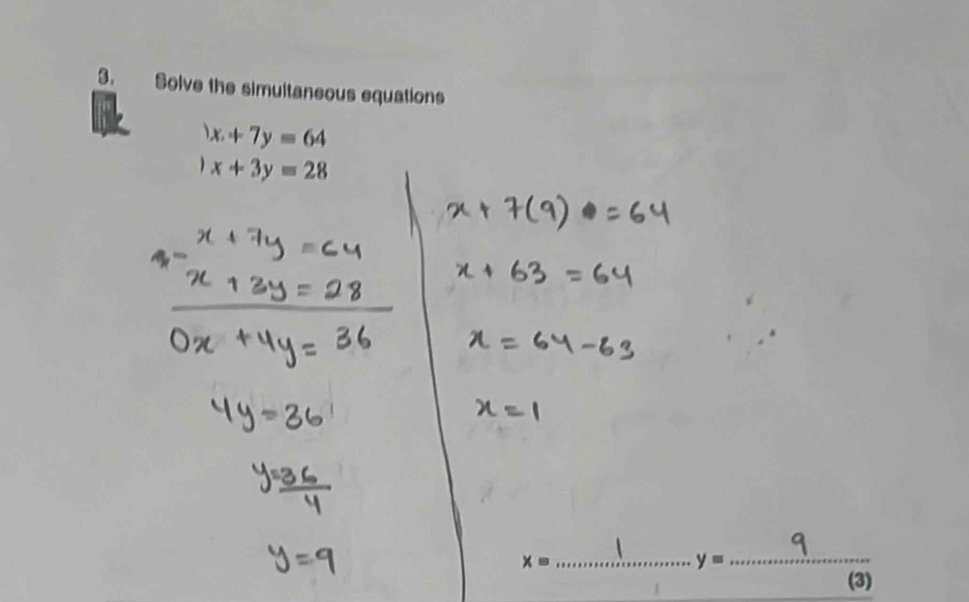 3. Solve the simultaneous equations
)x + 7y = 64
) x + 3y = 28
- x + 7y = 64
x + 3y = 28
0x + 4y = 36
4y = 36
y = 36/4
y = 9
x + 7(9) = 64
x + 63 = 64
x = 64 - 63
x = 1
x = 1 y = 9
(3)